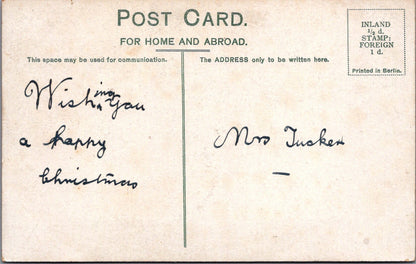 POST CARD.
FOR HOME AND ABROAD.
This space may be used for communication.
The ADDRESS only to be written here.
INLAND
½ d.
STAMP:
FOREIGN
1 d.
Printed in Berlin.
Wishing You
a happy
Christmas
Mrs Tucker